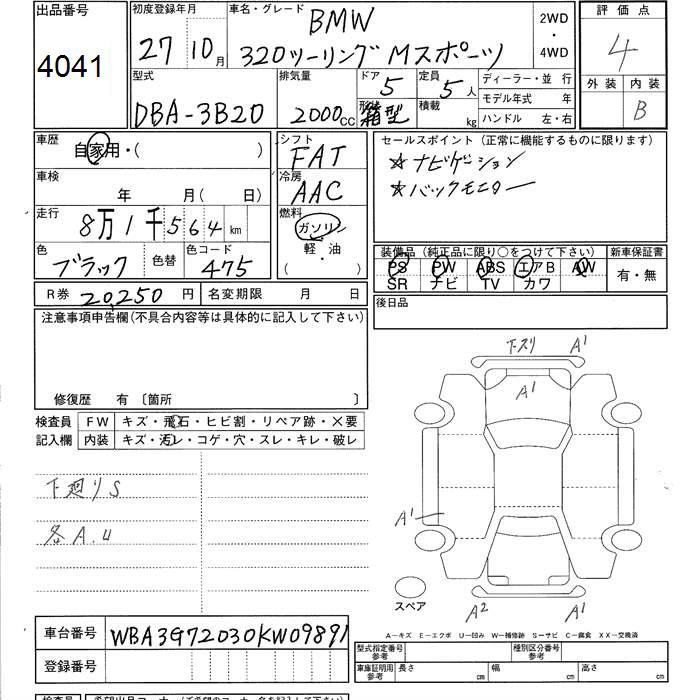 出品番号
4041
初度登録年月
27 10月
車名・グレード
BMW
320ツーリング Mスポーツ
2WD
・
4WD
評価点
4
外装 内装
B
型式
DBA-3B20
排気量
2000cc
ドア 5
形状 箱型
定員 5人
積載 kg
ディーラー・並 行
モデル年式 年
ハンドル 左・右
車歴
自家用・( )
車検
年 月( 日)
走行
8万1千564km
色
ブラック
色替
色コード
475
シフト
FAT
冷房
AAC
燃料
ガソリン
軽・油
( )
セールスポイント(正常に機能するものに限ります)
☆ナビゲーション
☆バックモニター
装備品(純正品に限り○をつけて下さい)
PS PW ABS エアB AW
SR ナビ TV カワ
新車保証書
有・無
R券 20,250円
名変期限 月 日
後日品
注意事項申告欄(不具合内容等は具体的に記入して下さい)
修復歴 有 〔箇所 〕
検査員
記入欄
FW キズ・飛石・ヒビ割・リペア跡・×要
内装 キズ・汚レ・コゲ・穴・スレ・キレ・破レ
下廻りS
各A.U
下スリ A1
A1
A1
A2 A1
スペア
A-キズ E-エクボ U-凹み W-補修跡 S-サビ C-腐食 XX-交換済
車台番号
WBA3G72030KW09891
登録番号
型式指定番号
参考
種別区分番号
参考
車庫証明用
参考
長さ cm 幅 cm 高さ cm